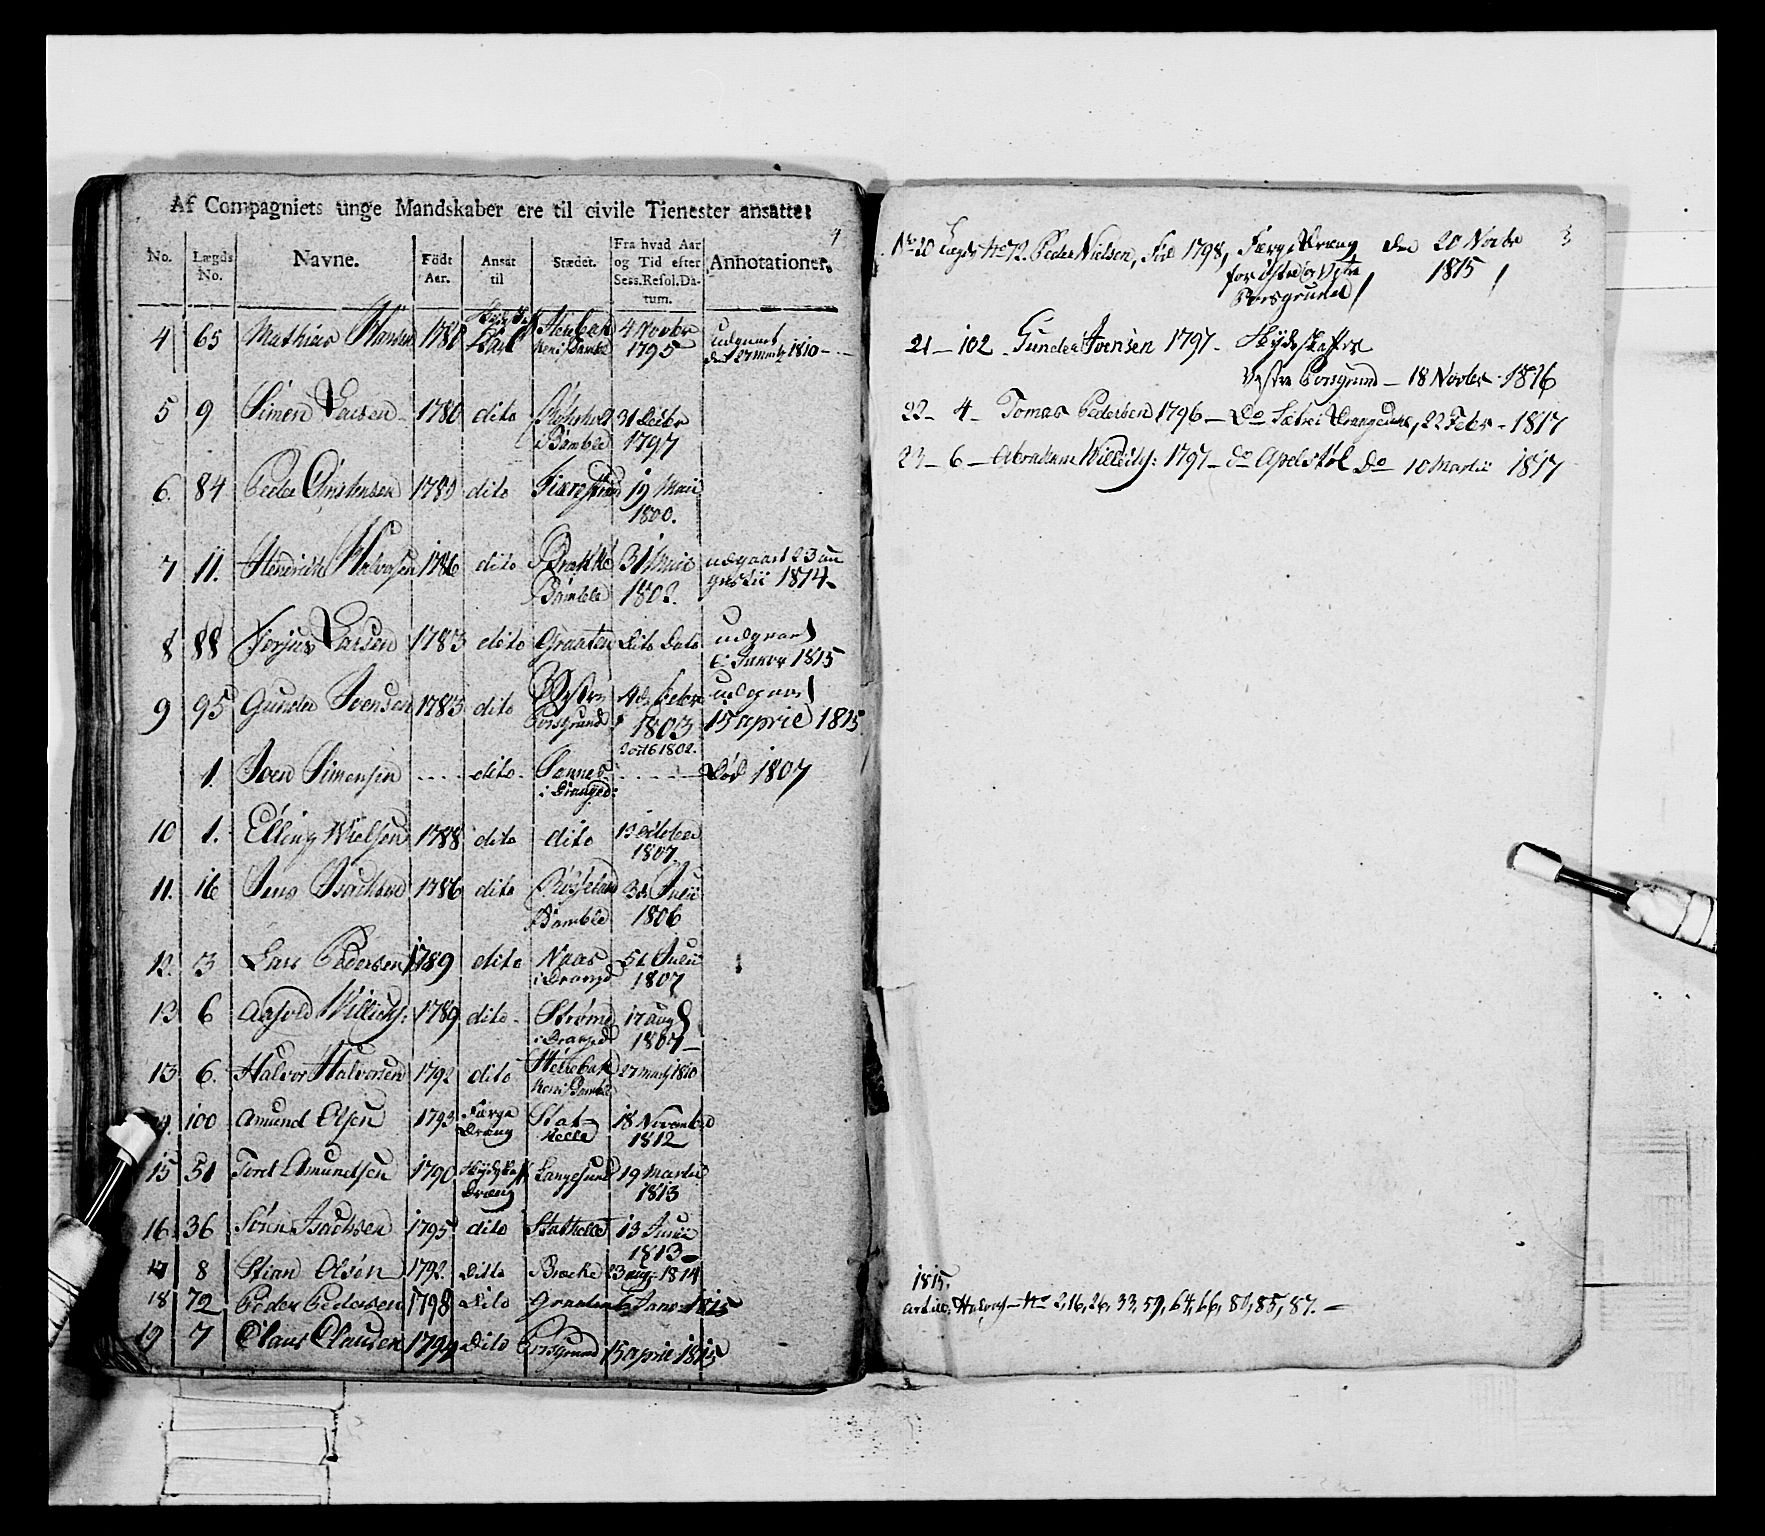 Af Compagniets unge Mandskaber ere til civile Tienester ansatte:
4
No. Lægds No. Navne. Födt Aar. Ansat til Stædet. Fra hvad Aar og Tid efter Sess.Resol.Datum. Annotationer.
4 65 Mathias Hansen 1781 4 Novbr
1795 udgaaet
den 27 Marty 1810
5 9 Simen Larsen 1780 dito 31 Decbr
i Bamble 1797
6. 84 Peder Christensen 1783 dito 19 Maii
1800.
7 11. Hendrich Halvorsen 1786 dito Brække 31 Maii udgaaet 23 au
Bamble 1802. gustii 1814
8 88 Larsen 1783 dito Graaten Dito Dato udgaaet
Janvr 1815
9 95 Gunder Svensen 1783 dito Østre 4de Febr udgaaet
Porsgrund 1803 15 april 1815
1802.
1. Sven Simensen dito Død 1807
i Drangd:
10 1. Elling Nielsen 1788 dito dito 13 October
1807
11. 16 Jens Isachsen 1786 dito 31 Julii
Bamble 1806
12. 3 Lars Pedersen 1789 dito Naas 31 Julii
i Drangd 1807
13 6 Willichs: 1789 dito Strømd 17 aug
i Drangd 1807
13 6. Halvor Halvorsen 1792 dito 27 marty 1810
Bamble
100 Amund Olsen 1793 Færge Stat 18 November
Dræng helle 1812
15 51 Toret Amundsen 1790 Skydskaf Langesund 19 Martii
Dræng 1813
16 36 Sören Isachsen 1795 dito Stathelle 13 Junii
1813
17 8 Stian Olsen 1792. Ditto Bræcke 23 aug: 1814
18 72 Peder Pedersen 1798 Dito Graaten Janv 1815
19 7 Claus Clausen 1799 Dito Porsgrund 15 april 1815
No 20 Lægds No 72. Peder Nielsen, Föd 1798, Færge Dræng den 20 Novbr 3
for østre og Vestre 1815
Porsgrund
21 - 102 Gunder Svensen 1797 - Skydskaffer
Vestre Porsgrund - 18 Novbr 1816
22 - 4 - Tomas Pedersen 1796 - Do Sætre Drangedal, 22 Febr - 1817
23 - 6 - Abraham Willichs: 1797 - do Apelstøl Do 10 Martii 1817
1815.
No 2, 16, 26, 33, 59, 64, 66, 80, 85, 87. -